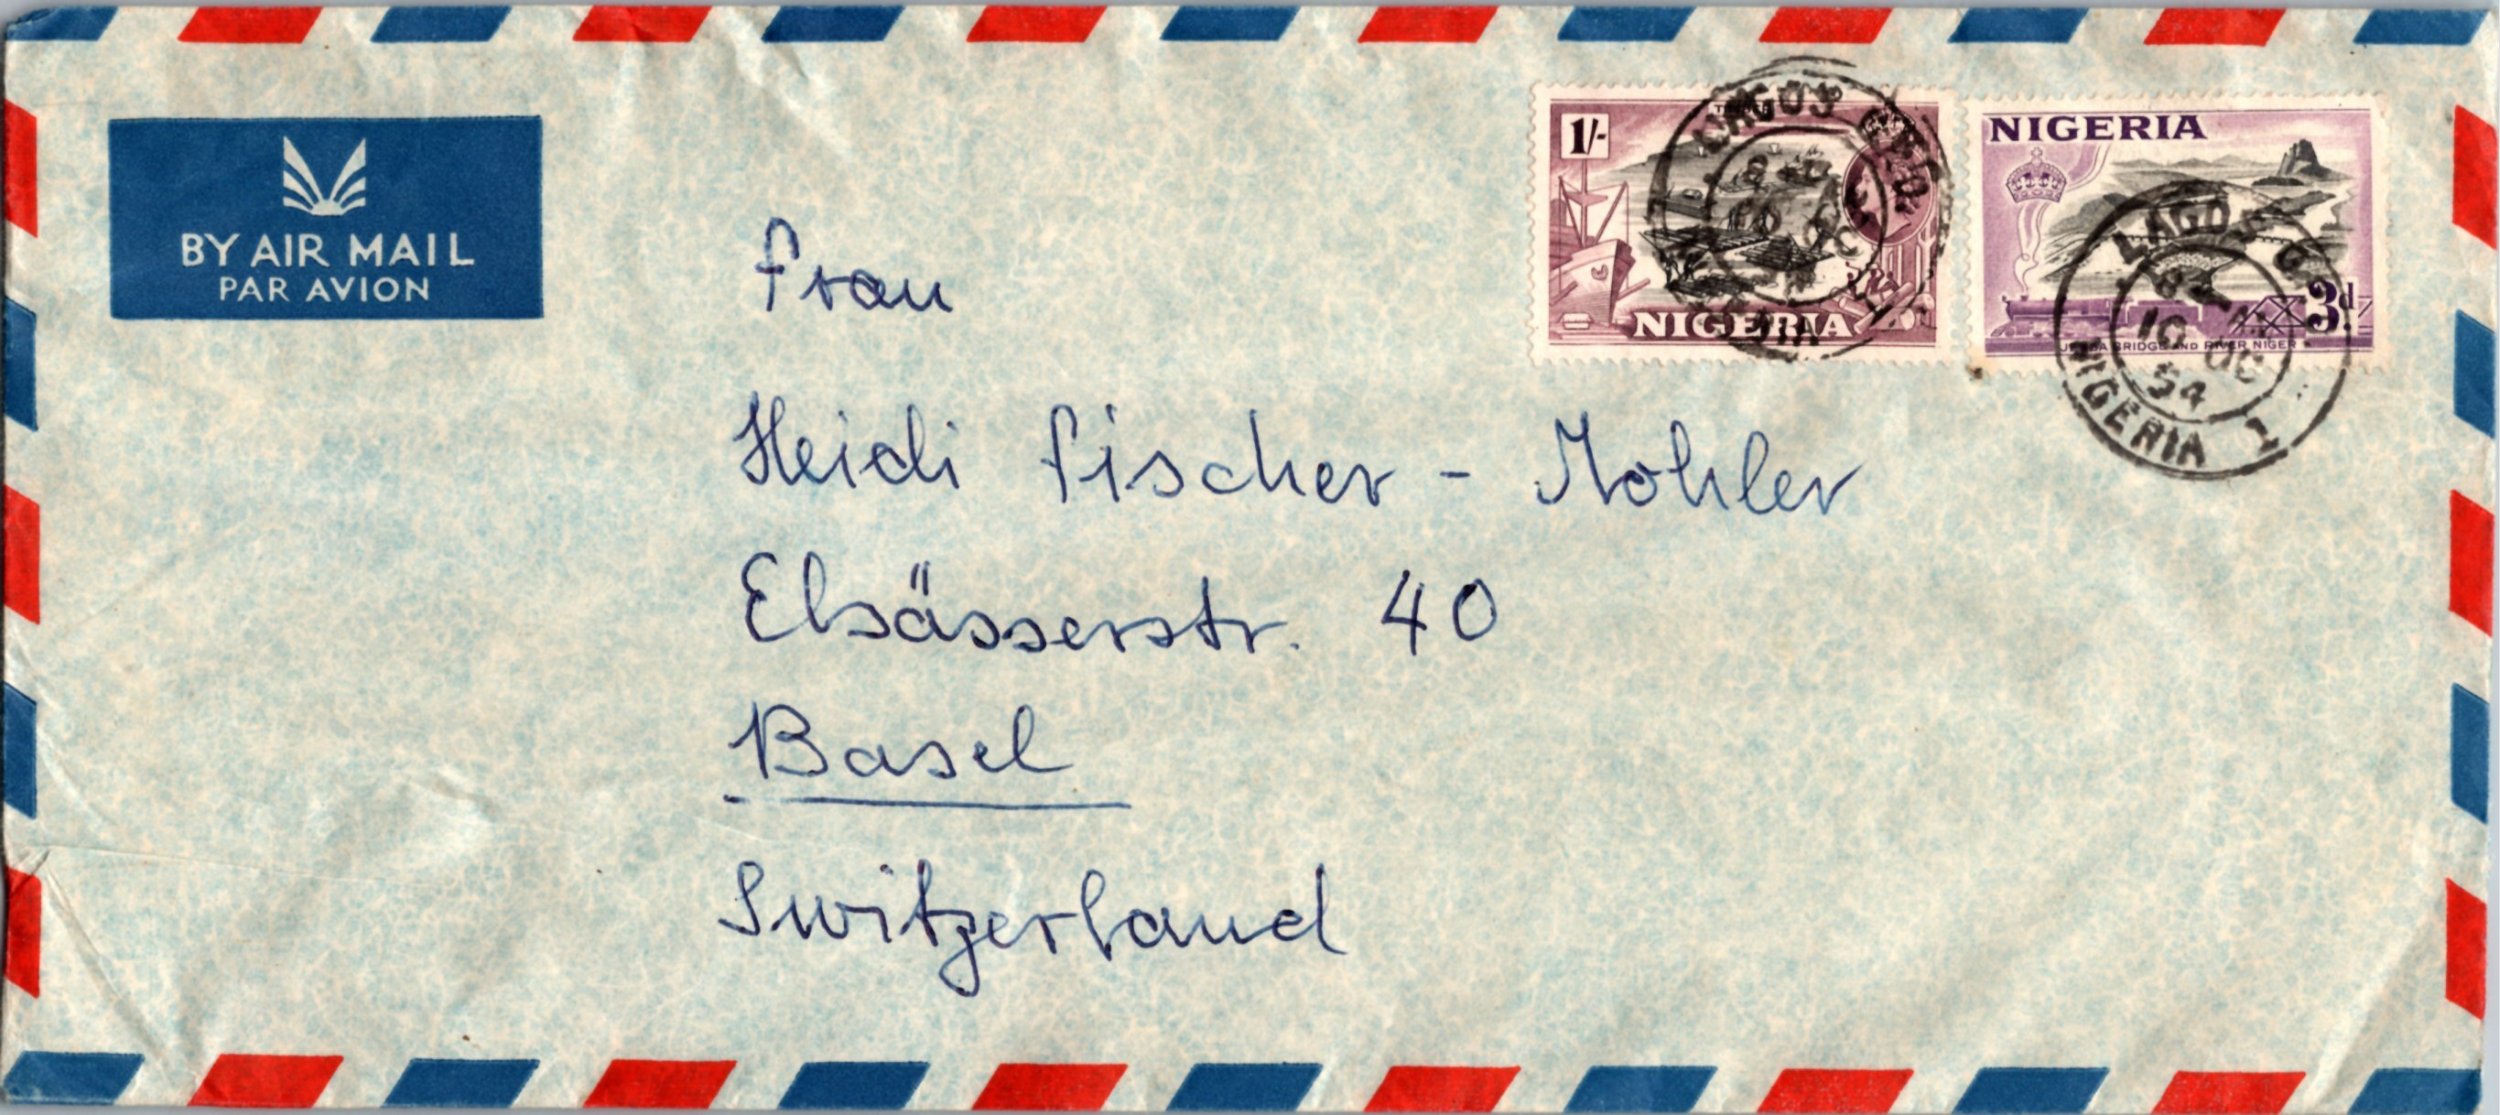 BY AIR MAIL
PAR AVION
1/-
TIMBER
NIGERIA
LAGOS G.P.O.
NIGERIA 1
NIGERIA
3d
JEBBA BRIDGE AND RIVER NIGER
LAGOS G.
10 OC
54
NIGERIA 1
Frau
Heidi Fischer - Mohler
Elsässerstr. 40
Basel
Switzerland